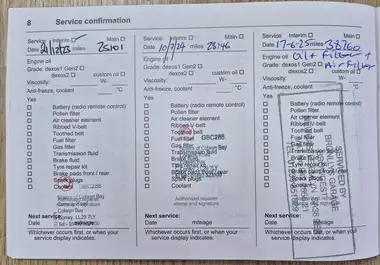 8 Service confirmation
Service: Interim Main
Date miles 25101
Engine oil
Grade: dexos1 Gen2
dexos2 custom oil
Viscosity: W-
Anti-freeze, coolant °C
Yes
Battery (radio remote control)
Pollen filter
Air cleaner element
Ribbed V-belt
Toothed belt
Fuel filter
Gas filter
Transmission fluid
Brake fluid
Tyre repair kit
Brake pads front / rear
Spark plugs
Coolant
Authorized repairer
Next service:
Date mileage
Whichever occurs first, or when your
service display indicates.
Service: Interim Main
Date 10/7/24 miles 28146
Engine oil
Grade: dexos1 Gen2
dexos2 custom oil
Viscosity: W-
Anti-freeze, coolant °C
Yes
Battery (radio remote control)
Pollen filter
Air cleaner element
Ribbed V-belt
Toothed belt
Fuel filter
Gas filter
Transmission fluid
Brake fluid
Tyre repair kit
Brake pads front / rear
Spark plugs
Coolant
Authorized repairer
stamp and signature
Next service:
Date mileage
Whichever occurs first, or when your
service display indicates.
Service: Interim Main
Date 17-6-25 miles 38760
Engine oil Oil + Filter +
Air Filter
Grade: dexos1 Gen2
dexos2 custom oil
Viscosity: W-
Anti-freeze, coolant °C
Yes
Battery (radio remote control)
Pollen filter
Air cleaner element
Ribbed V-belt
Toothed belt
Fuel filter
Gas filter
Transmission fluid
Brake fluid
Tyre repair kit
Brake pads front / rear
Spark plugs
Coolant
SERVICED BY
Next service:
Date mileage
Whichever occurs first, or when your
service display indicates.